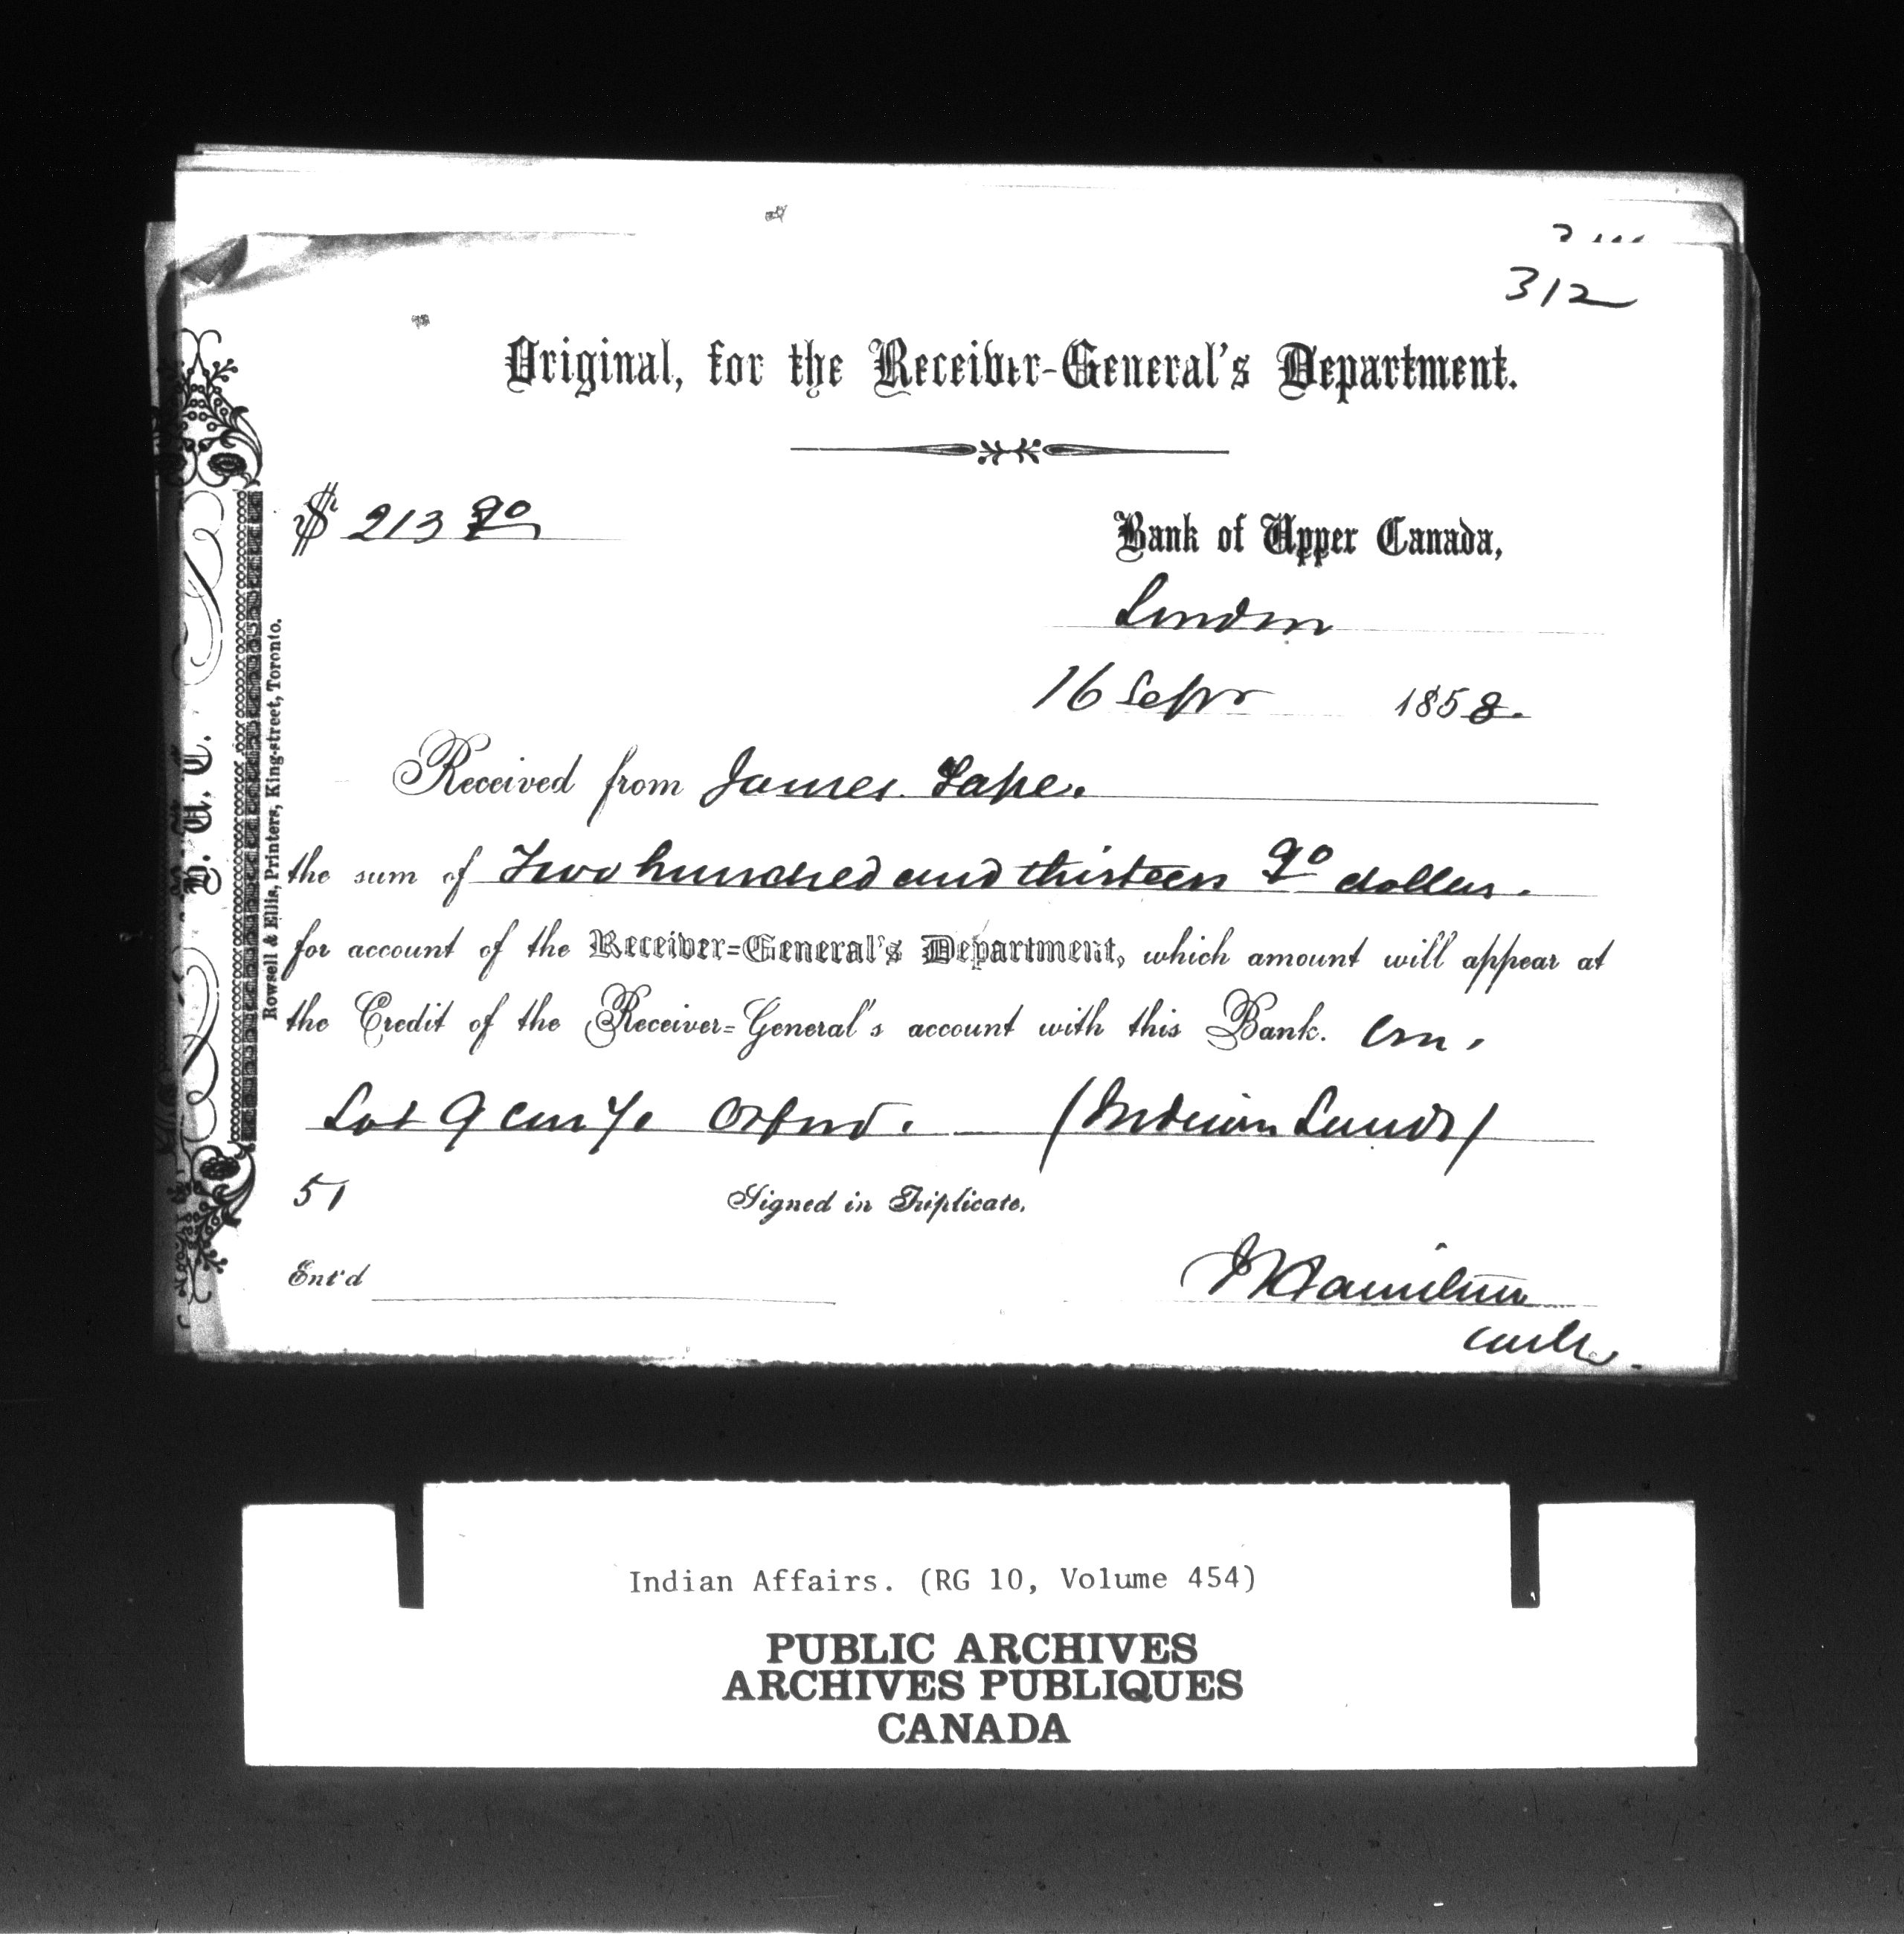 312
Original, for the Receiver-General's Department.
$ 213 90
Bank of Upper Canada,
London
16 Sepr 1858.
Received from James
the sum of Two hundred and thirteen 90 dollars.
for account of the Receiver-General's Department, which amount will appear at
the Credit of the Receiver-General's account with this Bank. on,
Lot 9 Con Orford. (Indian Lands)
51 Signed in Triplicate.
Ent'd
Hamilton
B. U. C.
Rowsell & Ellis, Printers, King-street, Toronto.
Indian Affairs. (RG 10, Volume 454)
PUBLIC ARCHIVES
ARCHIVES PUBLIQUES
CANADA